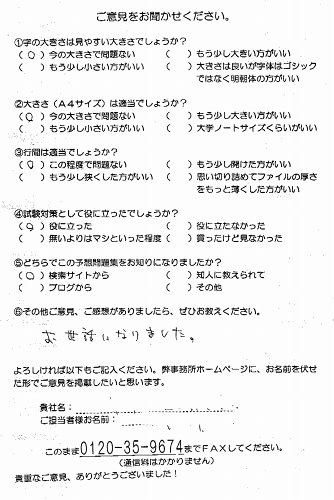 ご意見をお聞かせください。
①字の大きさは見やすい大きさでしょうか？
(○) 今の大きさで問題ない ( ) もう少し大きい方がいい
( ) もう少し小さい方がいい ( ) 大きさは良いが字体はゴシック
ではなく明朝体の方がいい
②大きさ（A4サイズ）は適当でしょうか？
(○) 今の大きさで問題ない ( ) もう少し大きい方がいい
( ) もう少し小さい方がいい ( ) 大学ノートサイズくらいがいい
③行間は適当でしょうか？
(○) この程度で問題ない ( ) もう少し開けた方がいい
( ) もう少し狭くした方がいい ( ) 思い切り詰めてファイルの厚さ
をもっと薄くした方がいい
④試験対策として役に立ったでしょうか？
(○) 役に立った ( ) 役に立たなかった
( ) 無いよりはマシといった程度 ( ) 買ったけど見なかった
⑤どちらでこの予想問題集をお知りになりましたか？
(○) 検索サイトから ( ) 知人に教えられて
( ) ブログから ( ) その他
⑥その他ご意見、ご感想がありましたら、ぜひお教えください。
お世話になりました。
よろしければ以下もご記入ください。弊事務所ホームページに、お名前を伏せ
た形でご意見を掲載したいと思います。
貴社名：
ご担当者様お名前：
このまま0120-35-9674までFAXしてください。
（通信料はかかりません）
貴重なご意見、ありがとうございました！